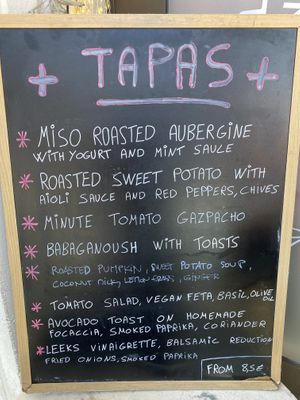 + TAPAS +
* MISO ROASTED AUBERGINE
WITH YOGURT AND MINT SAULE
* ROASTED SWEET POTATO WITH
AIOLI SAUCE AND RED PEPPERS, CHIVES
* MINUTE TOMATO GAZPACHO
* BABAGANOUSH WITH TOASTS
* ROASTED PUMPKIN, SWEET POTATO SOUP,
COCONUT MILK, LEMONGRASS, GINGER
* TOMATO SALAD, VEGAN FETA, BASIL, OLIVE
OIL
* AVOCADO TOAST ON HOMEMADE
FOCACCIA, SMOKED PAPRIKA, CORIANDER
* LEEKS VINAIGRETTE, BALSAMIC REDUCTION
FRIED ONIONS, SMOKED PAPRIKA
FROM 8.5€